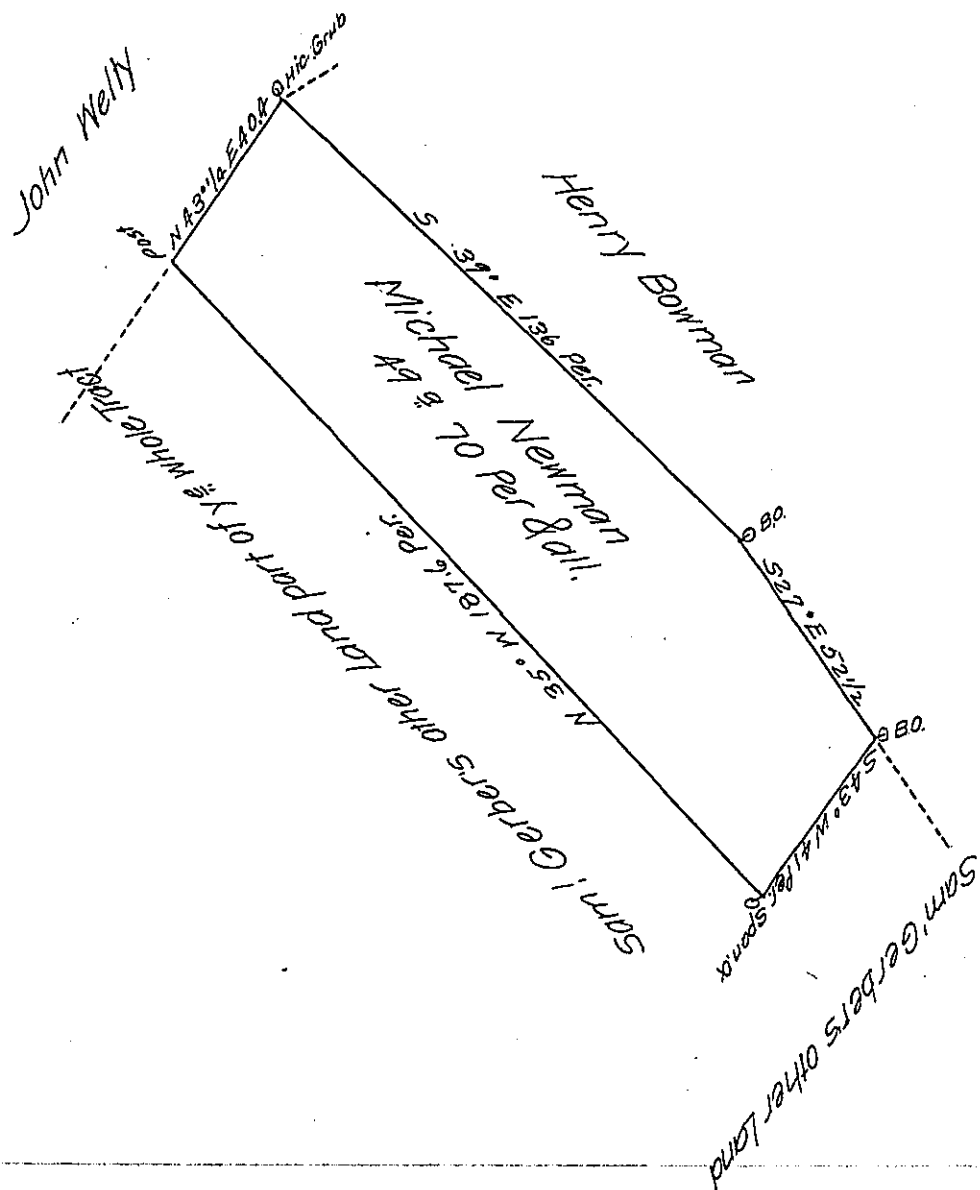 John Welty
Hic. Grub
N 43°¼ E 40.4
Post
Henry Bowman
S 39° E 136 Per.
Michael Newman
49 a̤̎ 70 Per & all.
B.O.
S 27° E 52 1/2
B.O.
S 43° W 41 Per.
Span. O
N 35° W 187.6 Per.
Sam'l Gerber's other Land part of ye whole Tract
Sam' Gerber's other Land